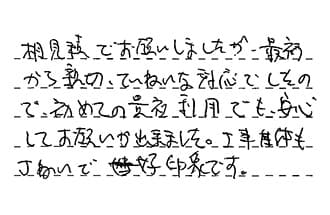 相見積でお願いしましたが、最初
から親切、ていねいな対応でしたの
で、初めての最初利用でも、安心
してお願いが出来ました。工事自体も
丁ねいで 好印象です。